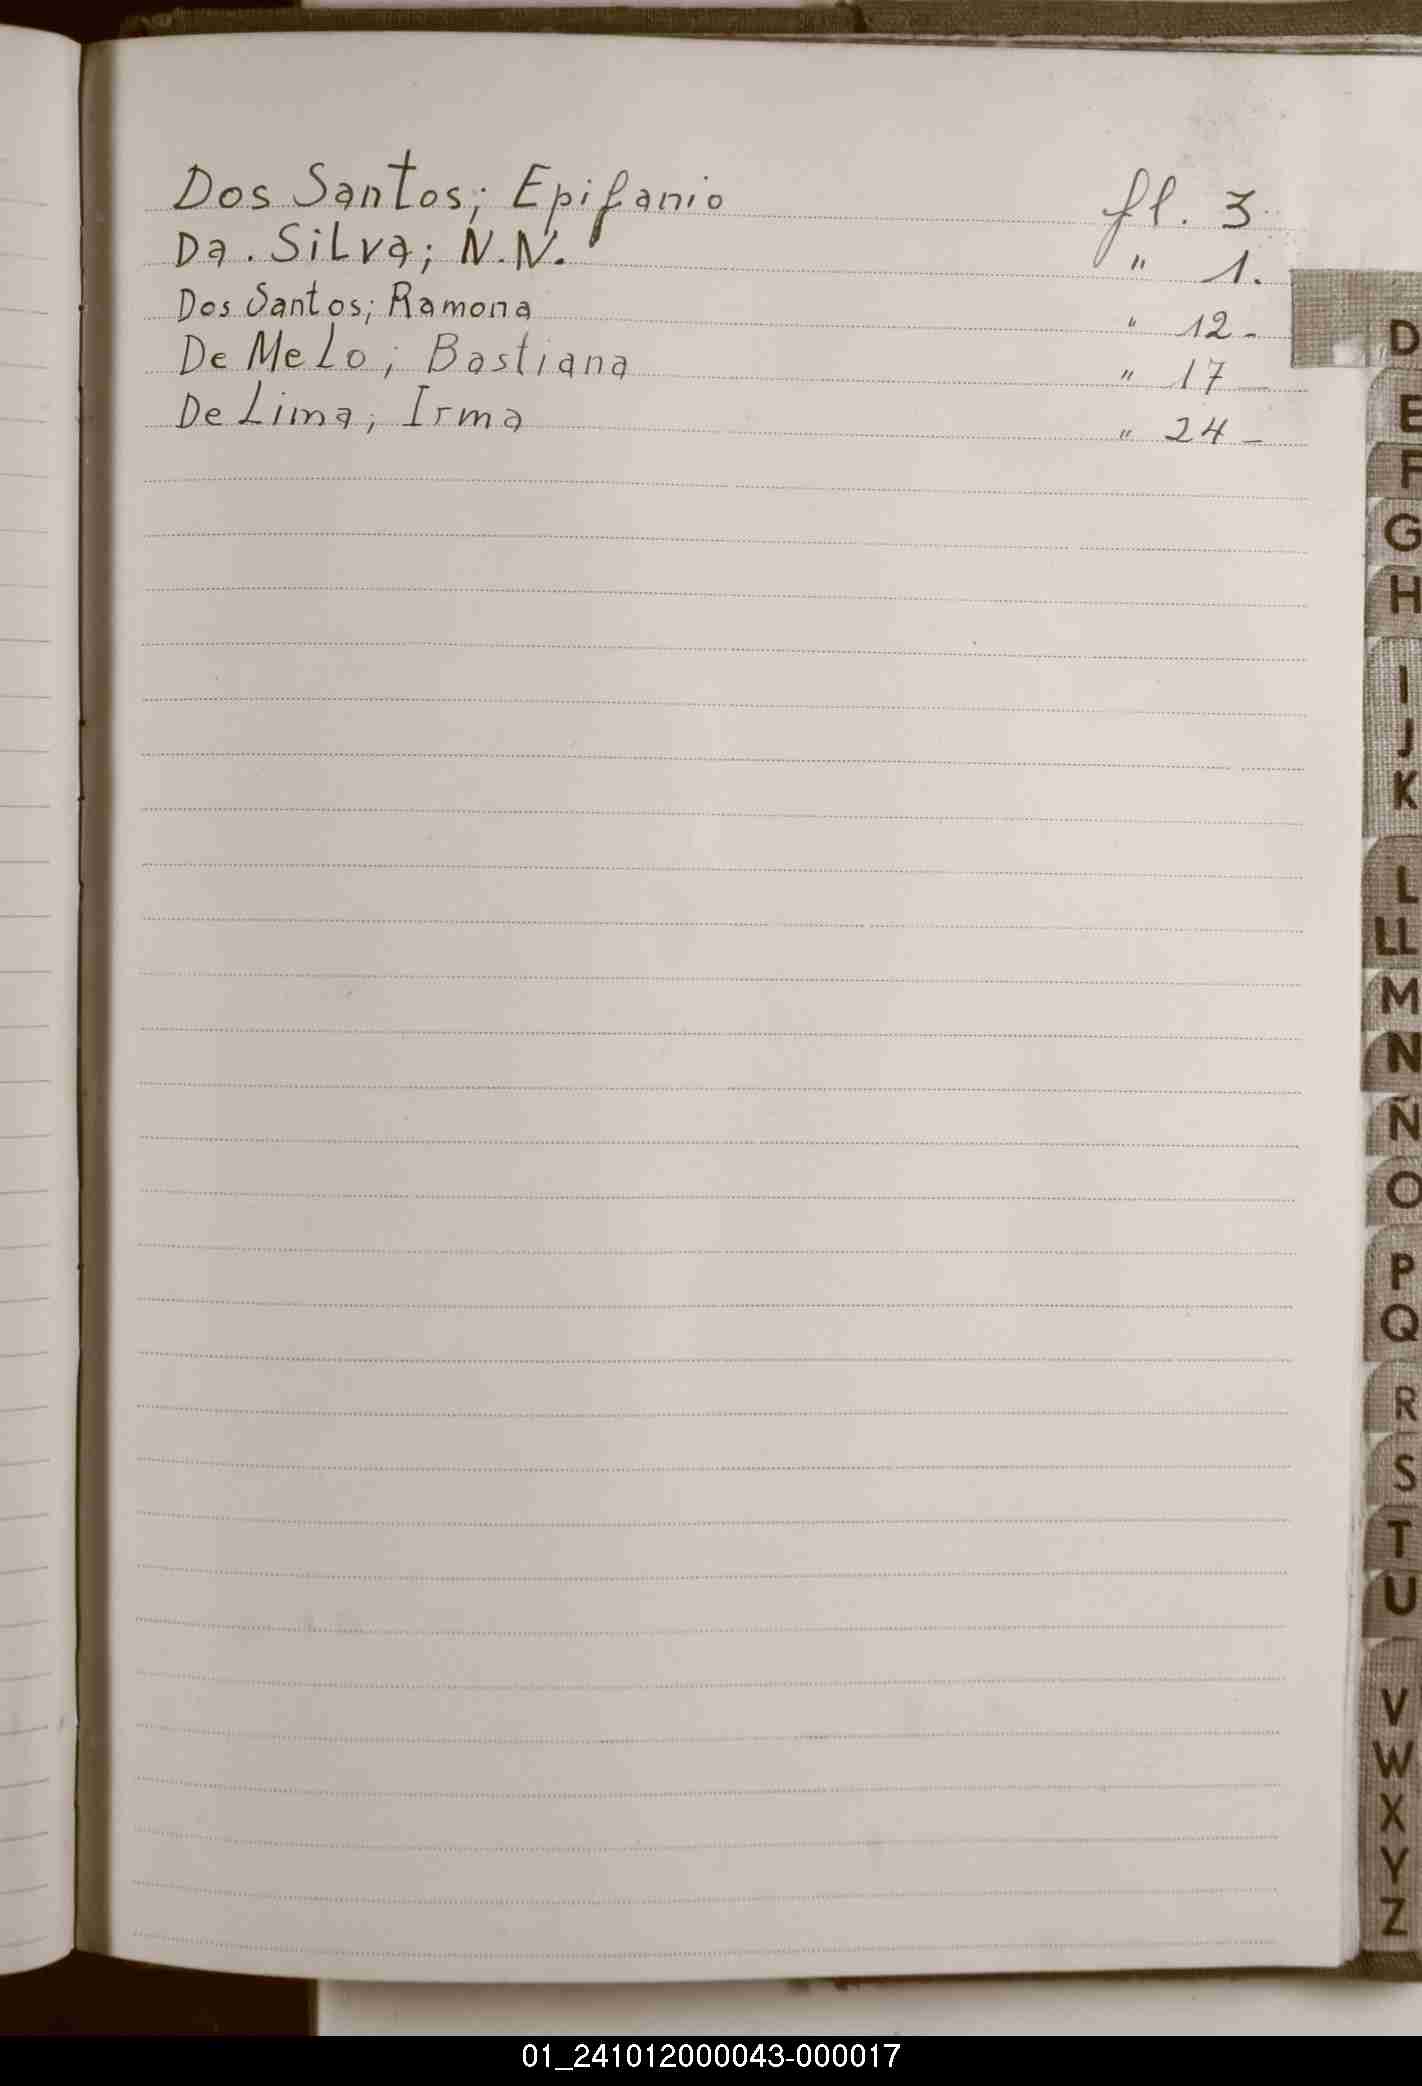 Dos Santos; Epifanio fl. 3
Da. Silva; N.N. " 1.
Dos Santos; Ramona " 12 -
De Melo; Bastiana " 17 —
De Lima; Irma " 24 -
D
E
F
G
H
I
J
K
L
LL
M
N
Ñ
O
P
Q
R
S
T
U
V
W
X
Y
Z
01_241012000043-000017